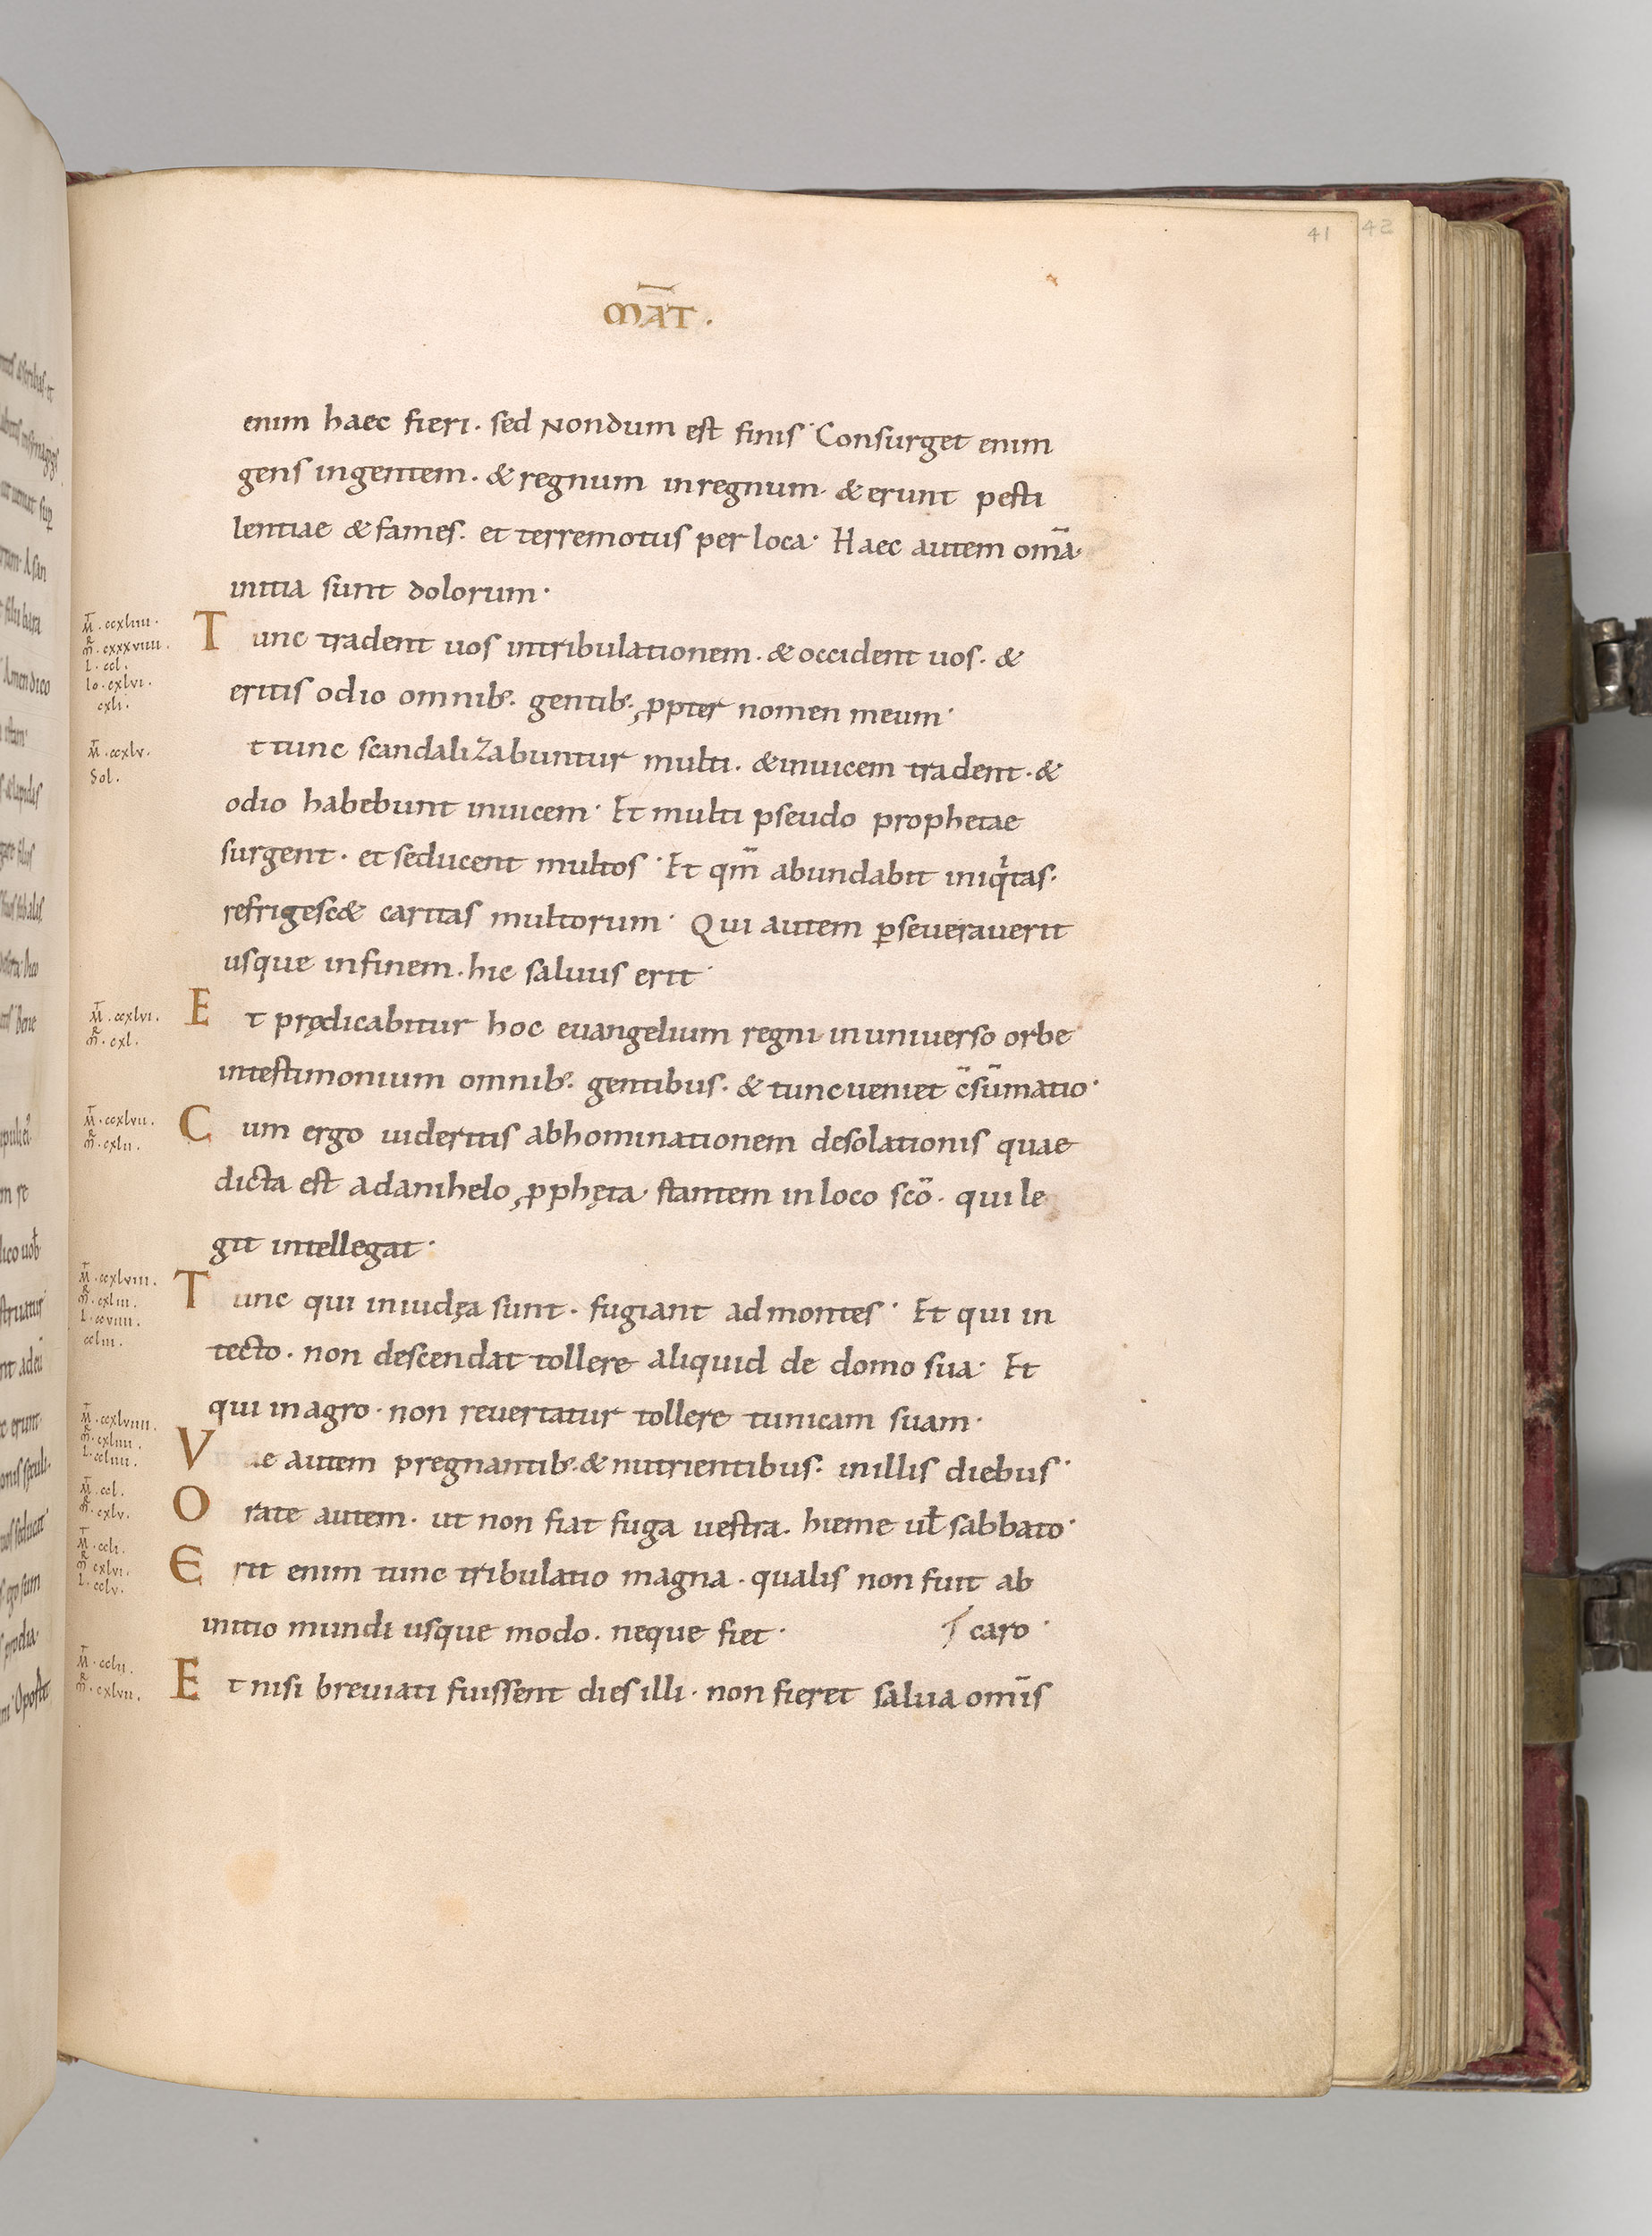 41
42
MAT̄.
enim haec fieri. sed Nondum est finis· Consurget enim
gens ingentem. & regnum inregnum. & erunt pesti
lentiae & fames. et terremotus per loca· Haec autem om̄a·
initia sunt dolorum·
M̄. ccxliiii.
M̄R. cxxxviiii.
L. ccl.
Io. cxlvi.
cxli.
Tunc tradent uos intribulationem. & occident uos. &
eritis odio omnib;. gentib;. ꝓpter nomen meum·
M̄. ccxlv.
Sol.
t tunc scandalizabuntur multi. & inuicem tradent. &
odio habebunt inuicem· Et multi pseudo prophetae
surgent. et seducent multos· Et qm̄ abundabit iniqͥtas.
refrigesc& caritas multorum· Qui autem ꝑseuerauerit
usque infinem. hic saluus erit·
M̄. ccxlvi.
M̄R. cxl.
Et prędicabitur hoc euangelium regni inuniuerso orbe
intestimonium omnib;. gentibus. & tunc ueniet c̄sūmatio·
M̄. ccxlvii.
M̄R. cxlii.
Cum ergo uideritis abhominationem desolationis quae
dicta est adanihelo ꝓphęta· stantem inloco scō. qui le
git intellegat·
M̄. ccxlviii.
M̄R. cxliii.
L. ccviiii.
ccliii.
Tunc qui iniudęa sunt. fugiant admontes· Et qui in
tecto. non descendat tollere aliquid de domo sua· Et
qui inagro. non reuertatur tollere tunicam suam·
M̄. ccxlviiii.
M̄R. cxliiii.
L. ccliiii.
Vae autem pregnantib;. & nutrientibus. inillis diebus·
M̄. ccl.
M̄R. cxlv.
Orate autem. ut non fiat fuga uestra. hieme ul̄ sabbato·
M̄. ccli.
M̄R. cxlvi.
L. cclv.
Erit enim tunc tribulatio magna. qualis non fuit ab
initio mundi usque modo. neque fiet· caro·
M̄. cclii.
M̄R. cxlvii.
Et nisi breuiati fuissent dies illi. non fieret salua om̄is